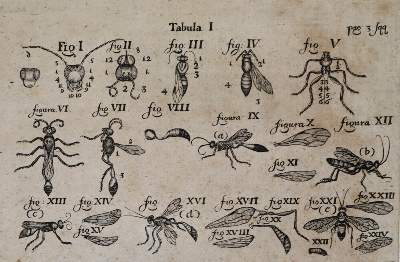 Tabula I
pag 3 sqq
Fig I fig II fig III fig IV fig V
figura VI fig VII fig VIII figura IX figura X figura XII
(a)
fig XI
(b)
fig XIII fig XIV fig XVI fig XVII fig XIX fig XXI fig XXIII
(c) (d) fig XX
fig XV fig XVIII XXII fig XXIV